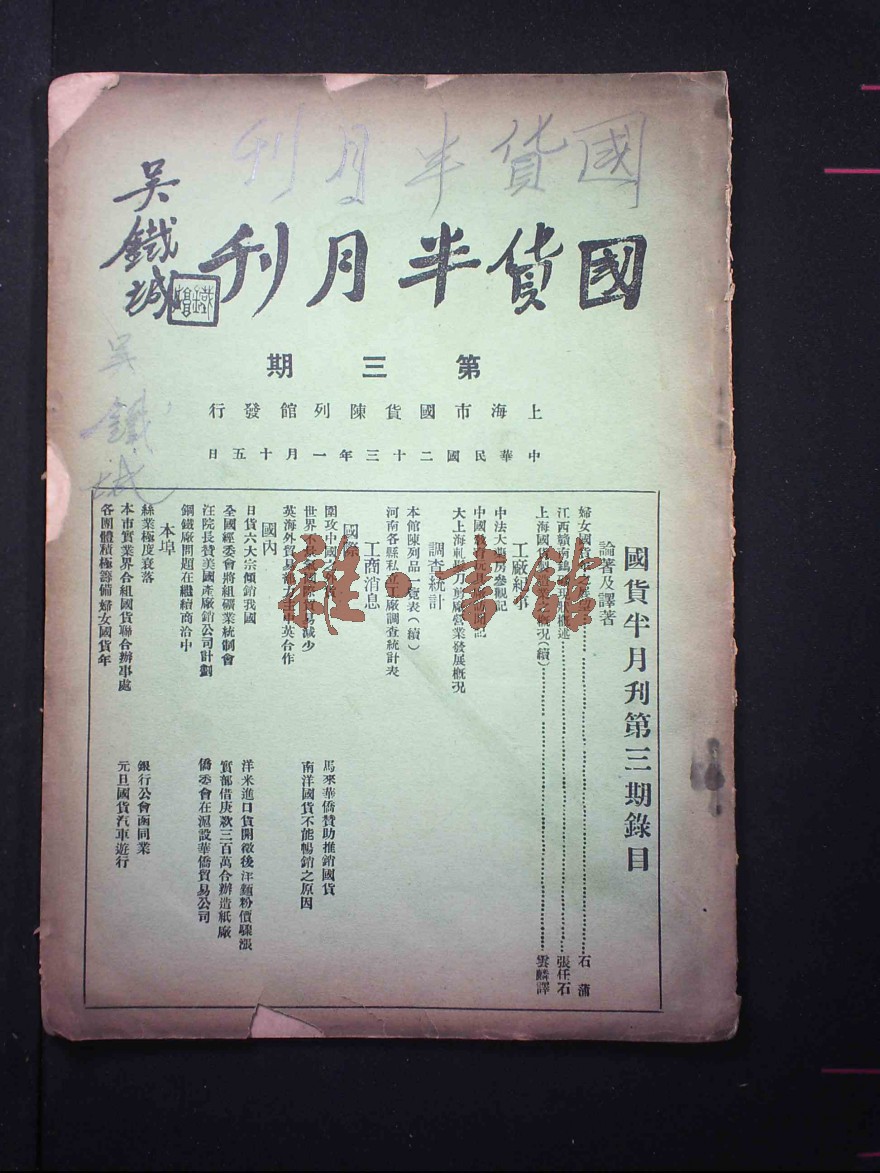 國貨半月刊
國貨半月刊
吳鐵城
吳鐵城
第三期
上海市國貨陳列館發行
中華民國二十三年一月十五日
國貨半月刊第三期錄目
論著及譯著
婦女國貨年之展望 石蒲
江西贛南鎢礦現狀概述 張任石
上海國貨製造業之概況(續) 雲麟譯
工廠紀事
中法大藥房參觀記
中國教育玩具廠訪問記
大上海軋剪刀剪廠營業發展概况
調查統計
本館陳列品一覽表(續)
河南各縣私立工廠調查統計表
工商消息
國際
圍攻中國之外貨 馬來華僑贊助推銷國貨
世界不景氣國際貿易減少 南洋國貨不能暢銷之原因
英海外貿易部力主中英合作
國內
日貨六大宗傾銷我國 洋米進口貨開徵後洋麵粉價驟漲
全國經委會將組礦業統制會 實部借庚款三百萬合辦造紙廠
汪院長贊美國產廠銷公司計劃 僑委會在滬設華僑貿易公司
鋼鐵廠問題在繼續商洽中
本埠
絲業極度衰落 銀行公會函同業
本市實業界合組國貨聯合辦事處 元旦國貨汽車遊行
各團體積極籌備婦女國貨年
雜·書館